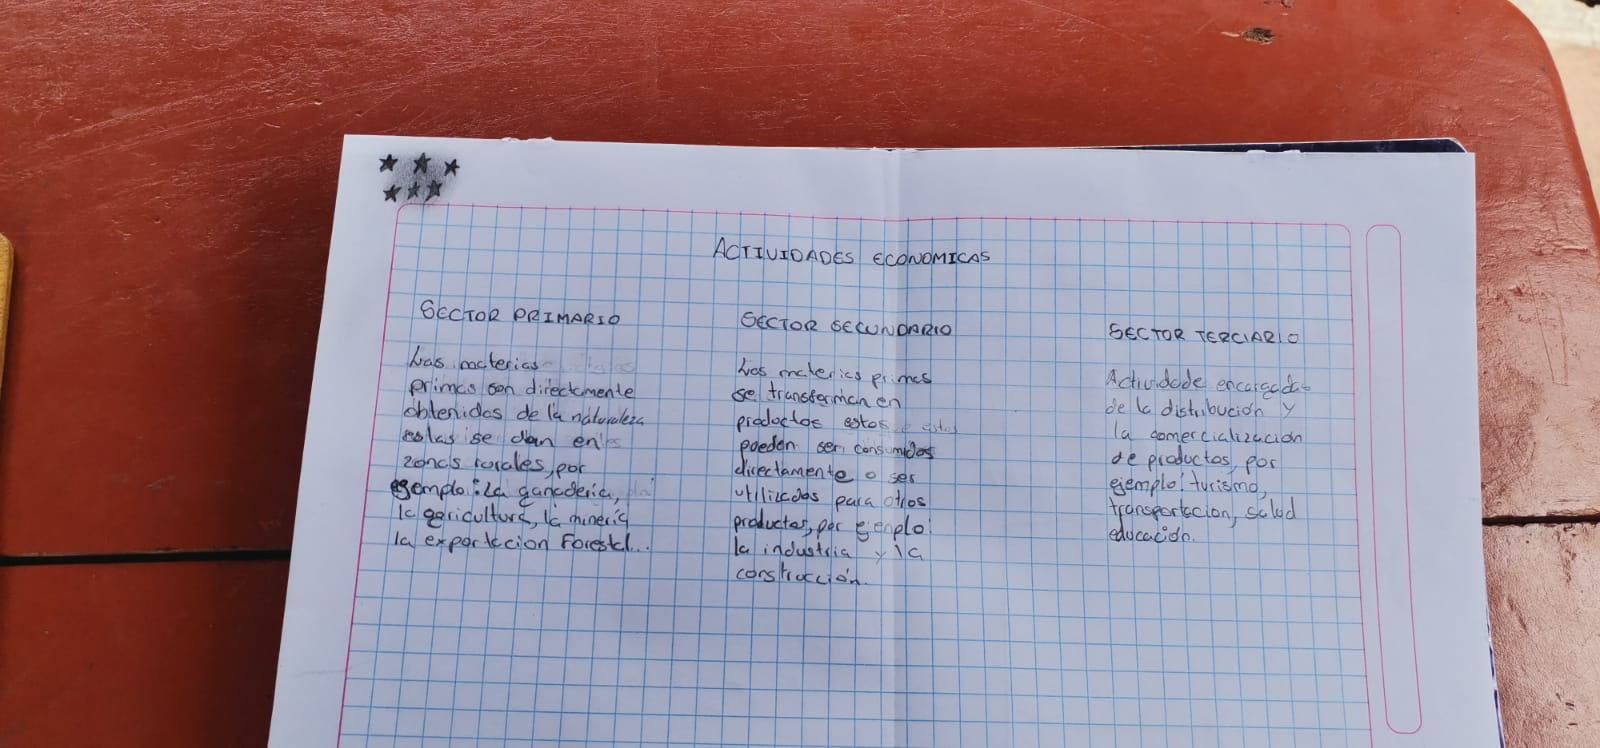 ACTIVIDADES ECONOMICAS
SECTOR PRIMARIO
Las materias
primas son directamente
obtenidas de la naturaleza
estas se dan en
zonas rurales, por
ejemplo: La ganaderia,
la agricultura, la mineria
la exportacion Forestal...
SECTOR SECUNDARIO
Las materias primas
se transforman en
productos estos
pueden ser consumidos
directamente o ser
utilizados para otros
productos, por ejemplo:
la industria y la
construcción.
SECTOR TERCIARIO
Actividade encargadas
de la distribución y
la comercialización
de productos, por
ejemplo: turismo,
transportacion, salud
educación.